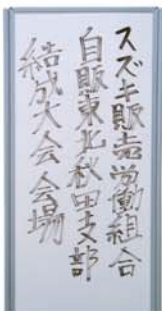 スズキ販売労働組合
自販東北秋田支部
結成大会会場